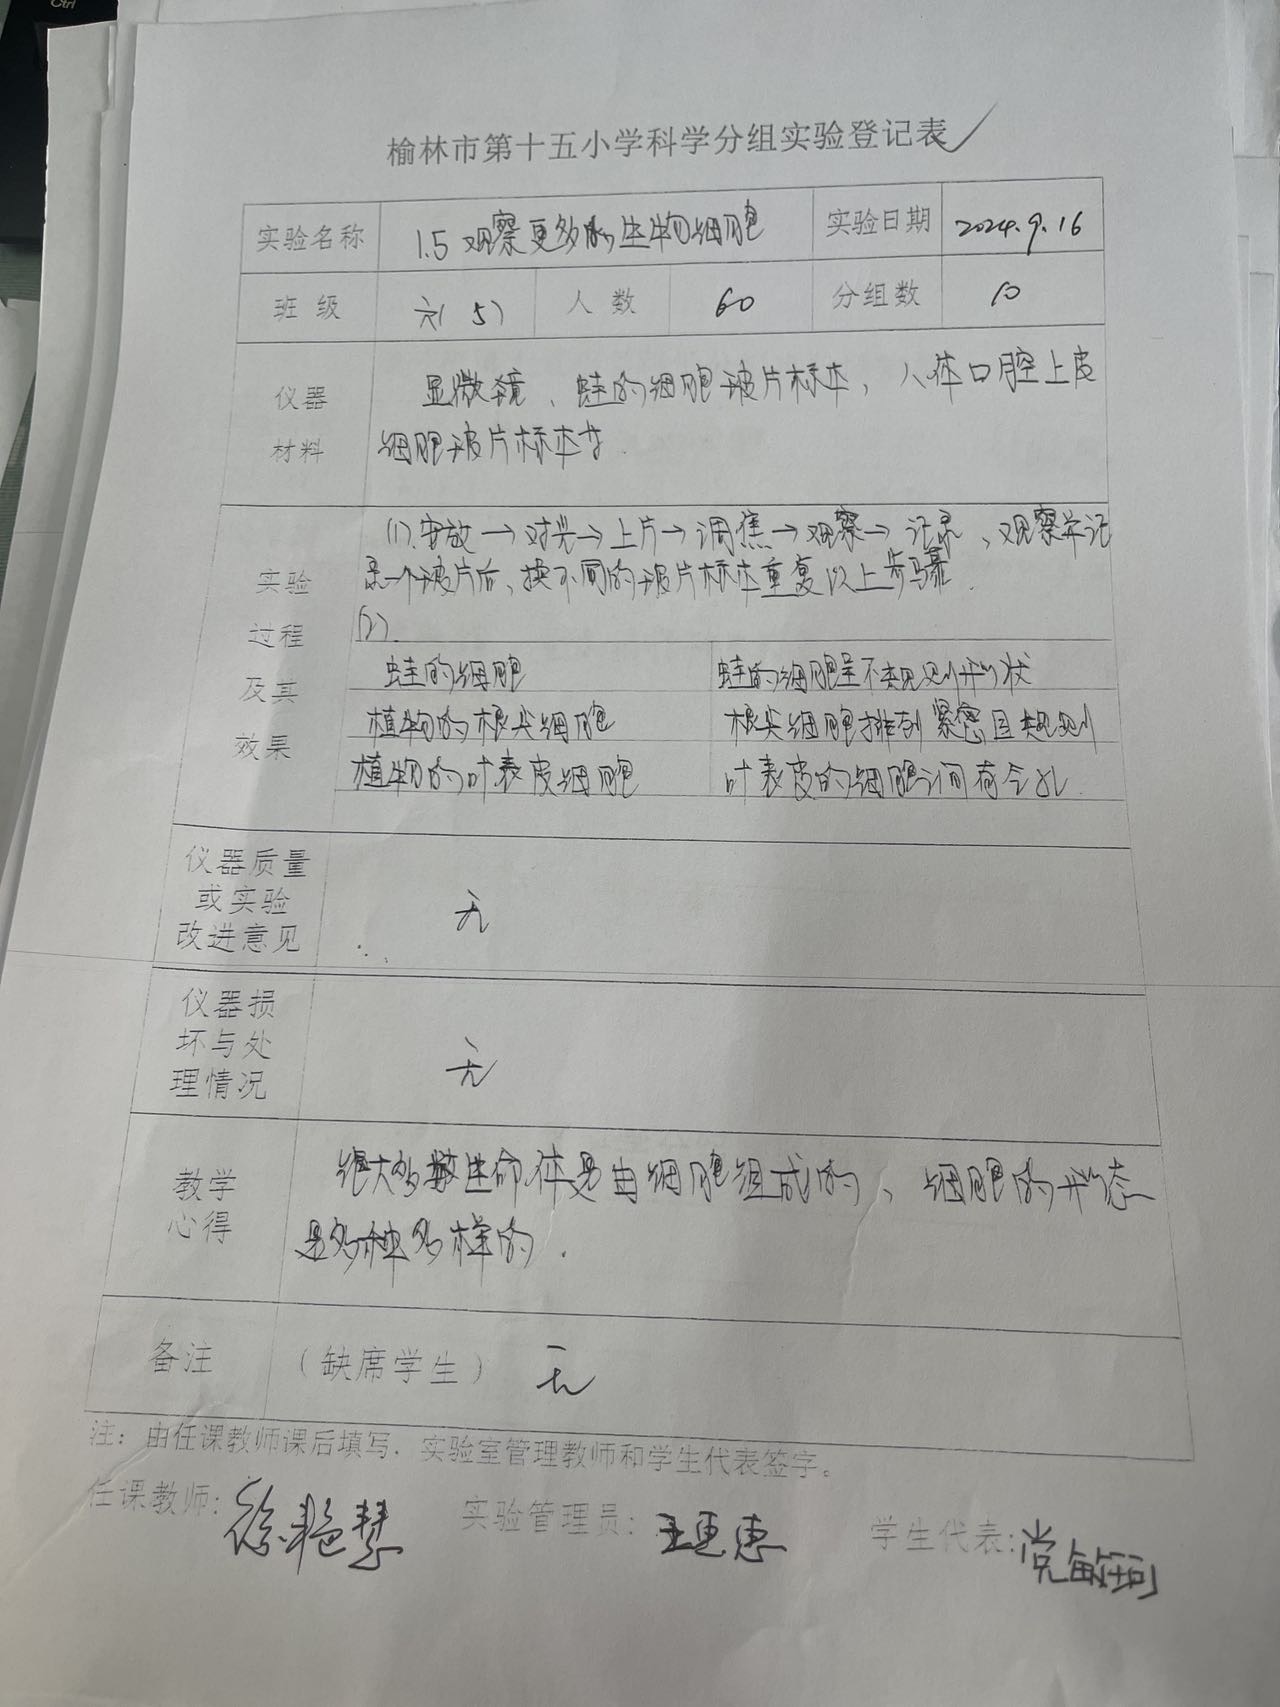 Ctrl
榆林市第十五小学科学分组实验登记表
实验名称 1.5 观察更多的生物细胞 实验日期 2024.9.16
班 级 六(5) 人 数 60 分组数 10
仪器 显微镜、蛙的细胞玻片标本，人体口腔上皮
材料 细胞玻片标本
(1).安放→对光→上片→调焦→观察→记录，观察并记
录一个玻片后，换不同的玻片标本重复以上步骤.
实验
过程
及其
效果
(2).
蛙的细胞 蛙的细胞呈不规则形状
植物的根尖细胞 根尖细胞排列紧密且规则
植物的叶表皮细胞 叶表皮的细胞间有气孔.
仪器质量
或实验
改进意见
无
仪器损
坏与处
理情况
无
教学
心得
很大多数生命体是由细胞组成的，细胞的形态
是多种多样的.
备注 （缺席学生） 无
注：由任课教师课后填写，实验室管理教师和学生代表签字。
任课教师: 徐艳慧 实验管理员: 学生代表: 党